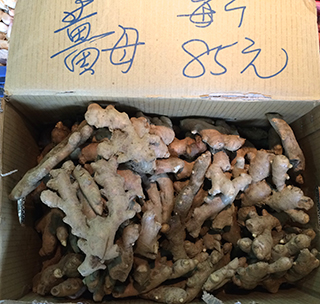 薑母 每斤
85元